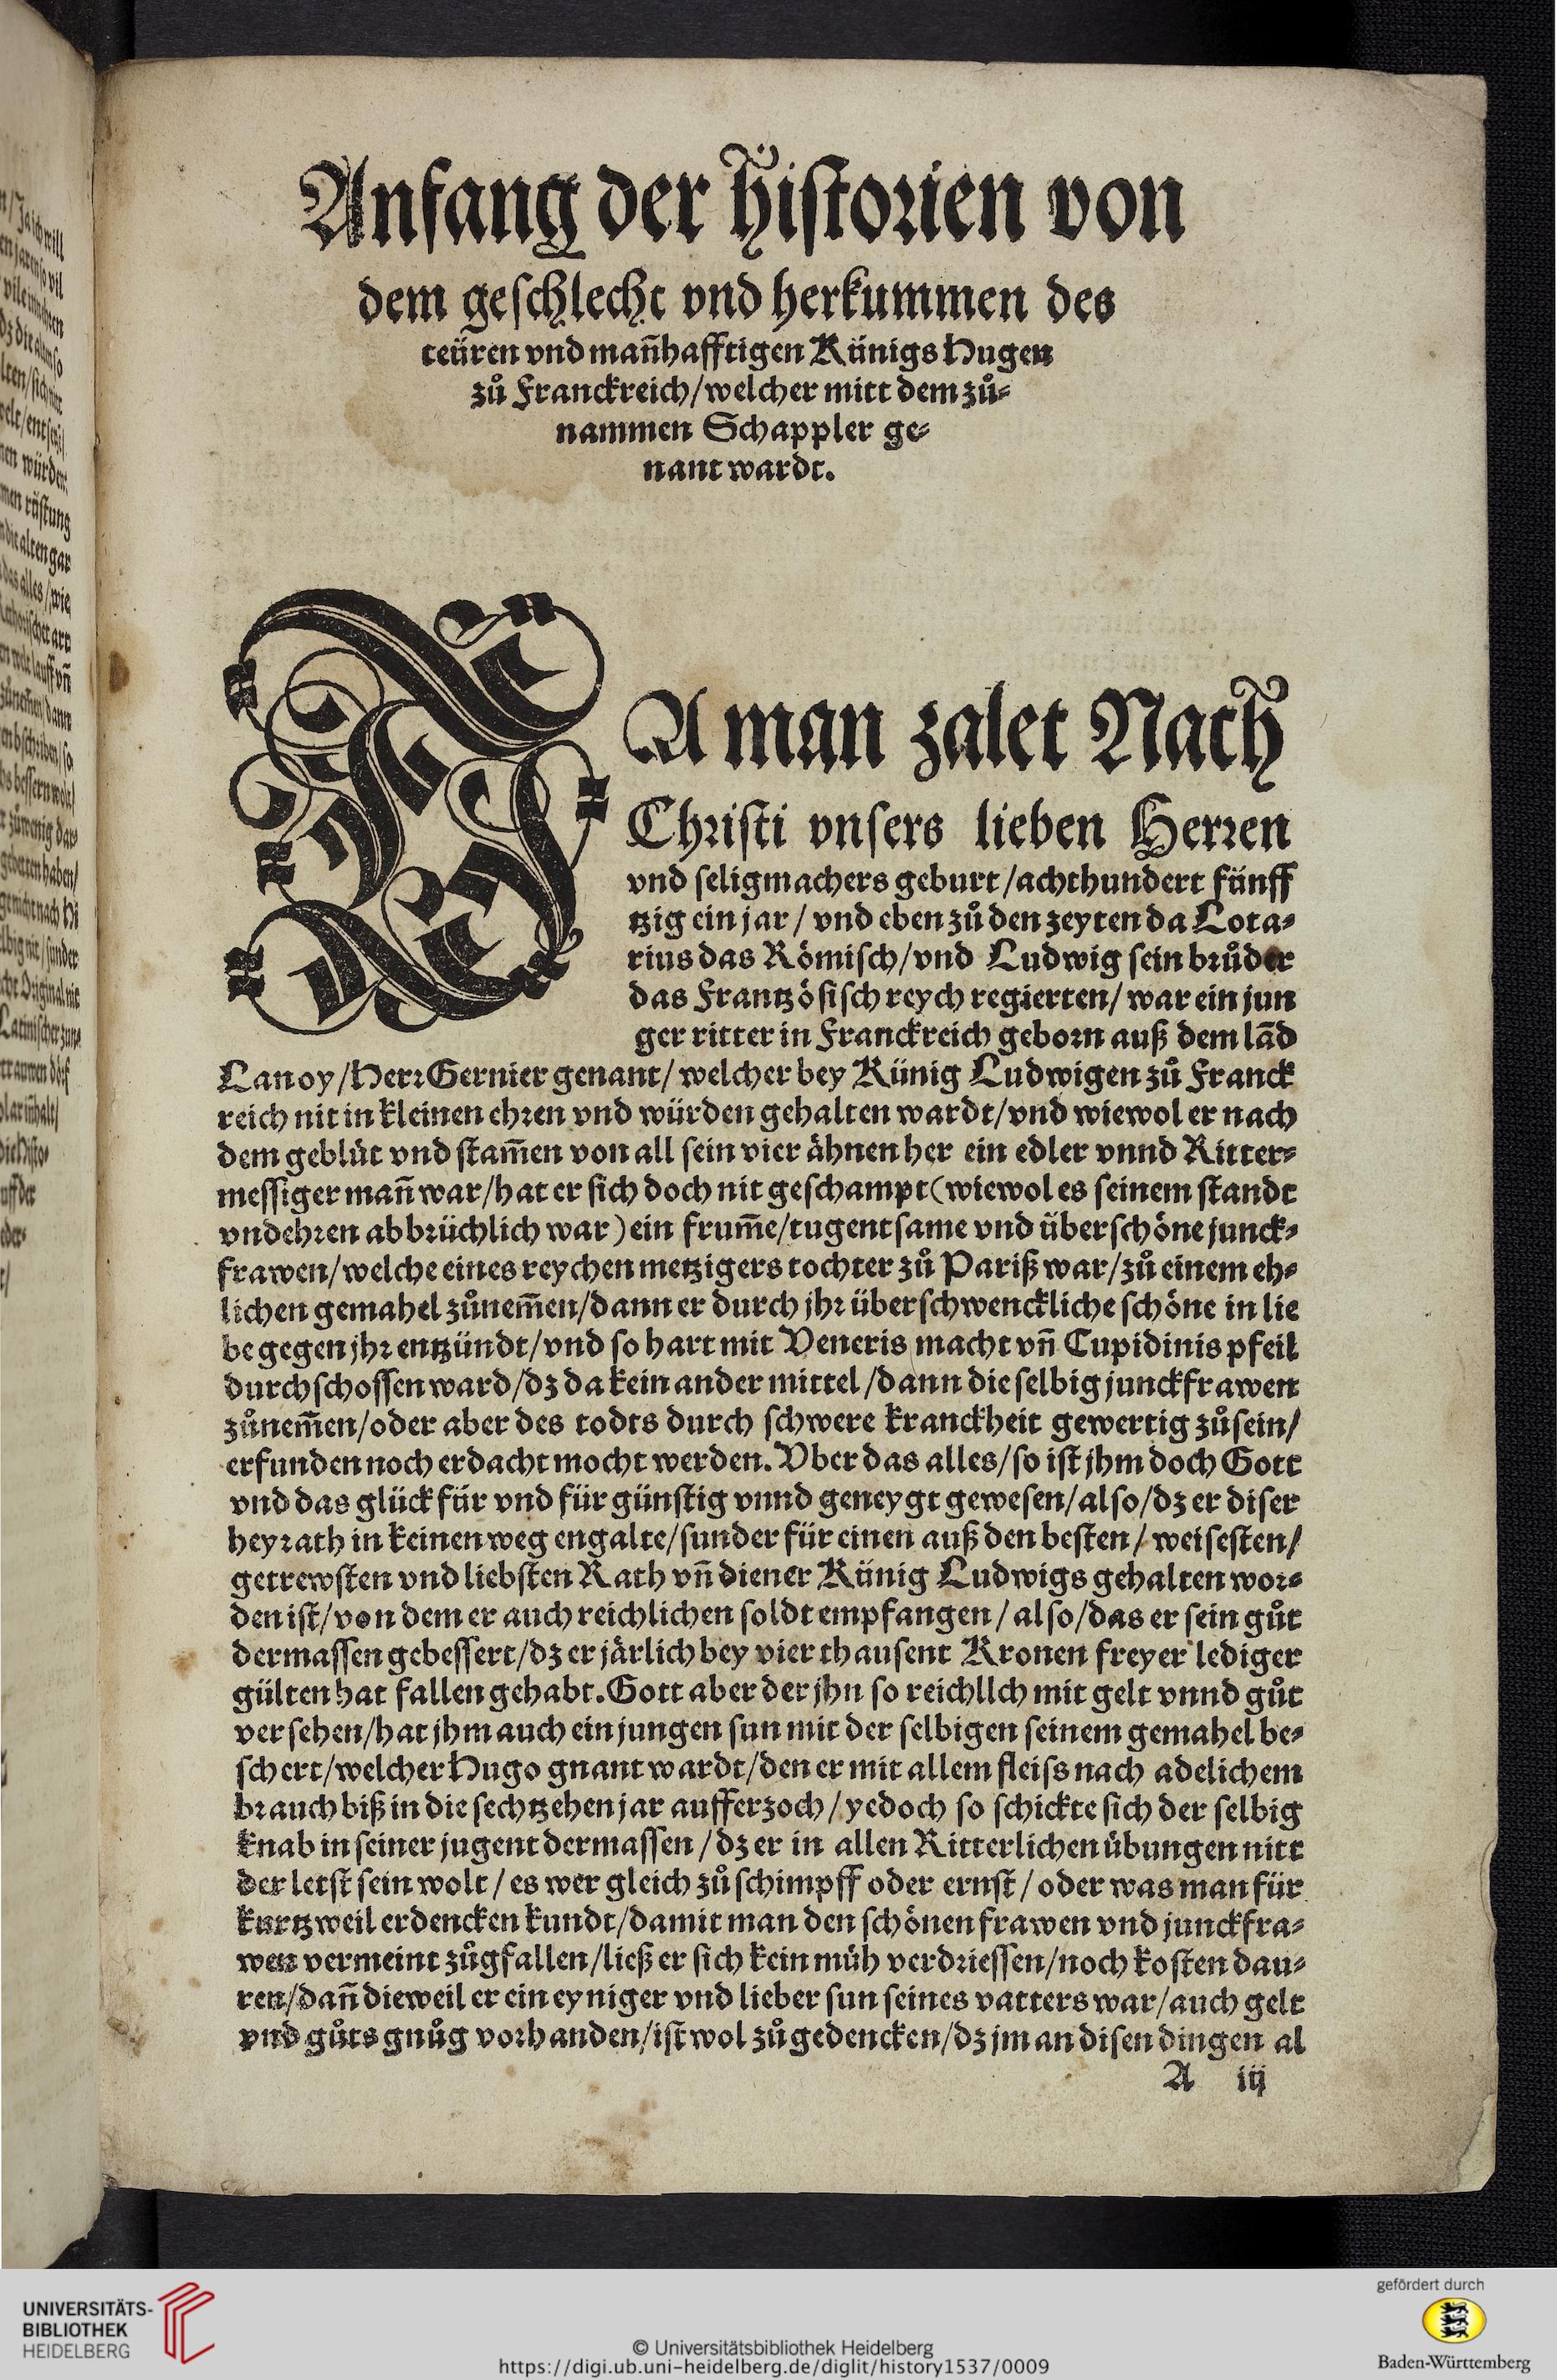 Anfang der Hiſtorien von
dem geſchlecht vnd herkummen des
teüren vnd man̄hafftigen Künigs Hugen
zů Franckreich/welcher mitt dem zů⸗
nammen Schappler ge⸗
nant wardt.
DA man zalet Nach
Chꝛiſti vnſers lieben Herꝛen
vnd ſeligmachers geburt/achthundert fünff
tzig ein jar/vnd eben zů den zeyten da Lota⸗
rius das Römiſch/vnd Ludwig ſein bꝛůder
das Frantzöſiſch reych regierten/war ein jun
ger ritter in Franckreich geboꝛn auß dem lād
Lanoy/Herꝛ Gernier genant/welcher bey Künig Ludwigen zů Franck
reich nit in kleinen ehꝛen vnd würden gehalten wardt/vnd wiewol er nach
dem geblüt vnd ſtam̄en von all ſein vier ähnen her ein edler vnnd Ritter⸗
meſſiger man̄ war/hat er ſich doch nit geſchampt(wiewol es ſeinem ſtandt
vnd ehꝛen abbꝛüchlich war)ein frum̄e/tugentſame vnd überſchöne junck⸗
frawen/welche eines reychen metzigers tochter zů Pariß war/zů einem eh⸗
lichen gemahel zůnem̄en/dann er durch jhꝛ überſchwenckliche ſchöne in lie
be gegen jhꝛ entzündt/vnd ſo hart mit Veneris macht vn̄ Cupidinis pfeil
durchſchoſſen ward/dz da kein ander mittel/dann die ſelbig junckfrawen
zůnem̄en/oder aber des todts durch ſchwere kranckheit gewertig zůſein/
erfunden noch erdacht mocht werden. Vber das alles/ſo iſt jhm doch Gott
vnd das glück für vnd für günſtig vnnd geneygt geweſen/alſo/dz er diſer
heyꝛath in keinen weg engalte/ſunder für einen auß den beſten/weiſeſten/
getrewſten vnd liebſten Rath vn̄ diener Künig Ludwigs gehalten woꝛ⸗
den iſt/von dem er auch reichlichen ſoldt empfangen/alſo/das er ſein gůt
dermaſſen gebeſſert/dz er järlich bey vier thauſent Kronen freyer lediger
gülten hat fallen gehabt. Gott aber der jhn ſo reichllch mit gelt vnnd gůt
verſehen/hat jhm auch ein jungen ſun mit der ſelbigen ſeinem gemahel be⸗
ſchert/welcher Hugo gnant wardt/den er mit allem fleiſs nach adelichem
bꝛauch biß in die ſechtzehen jar aufferzoch/yedoch ſo ſchickte ſich der ſelbig
knab in ſeiner jugent dermaſſen/dz er in allen Ritterlichen übungen nitt
der letſt ſein wolt/es wer gleich zů ſchimpff oder ernſt/oder was man für
kurtzweil erdencken kundt/damit man den ſchönen frawen vnd junckfra⸗
wen vermeint zůgfallen/ließ er ſich kein müh verdꝛieſſen/noch koſten dau⸗
ren/dan̄ dieweil er ein eyniger vnd lieber ſun ſeines vatters war/auch gelt
vnd gůts gnůg voꝛhanden/iſt wol zů gedencken/dz jm an diſen dingen al
A iij
UNIVERSITÄTS-
BIBLIOTHEK
HEIDELBERG
© Universitätsbibliothek Heidelberg
https://digi.ub.uni-heidelberg.de/diglit/history1537/0009
gefördert durch
Baden-Württemberg